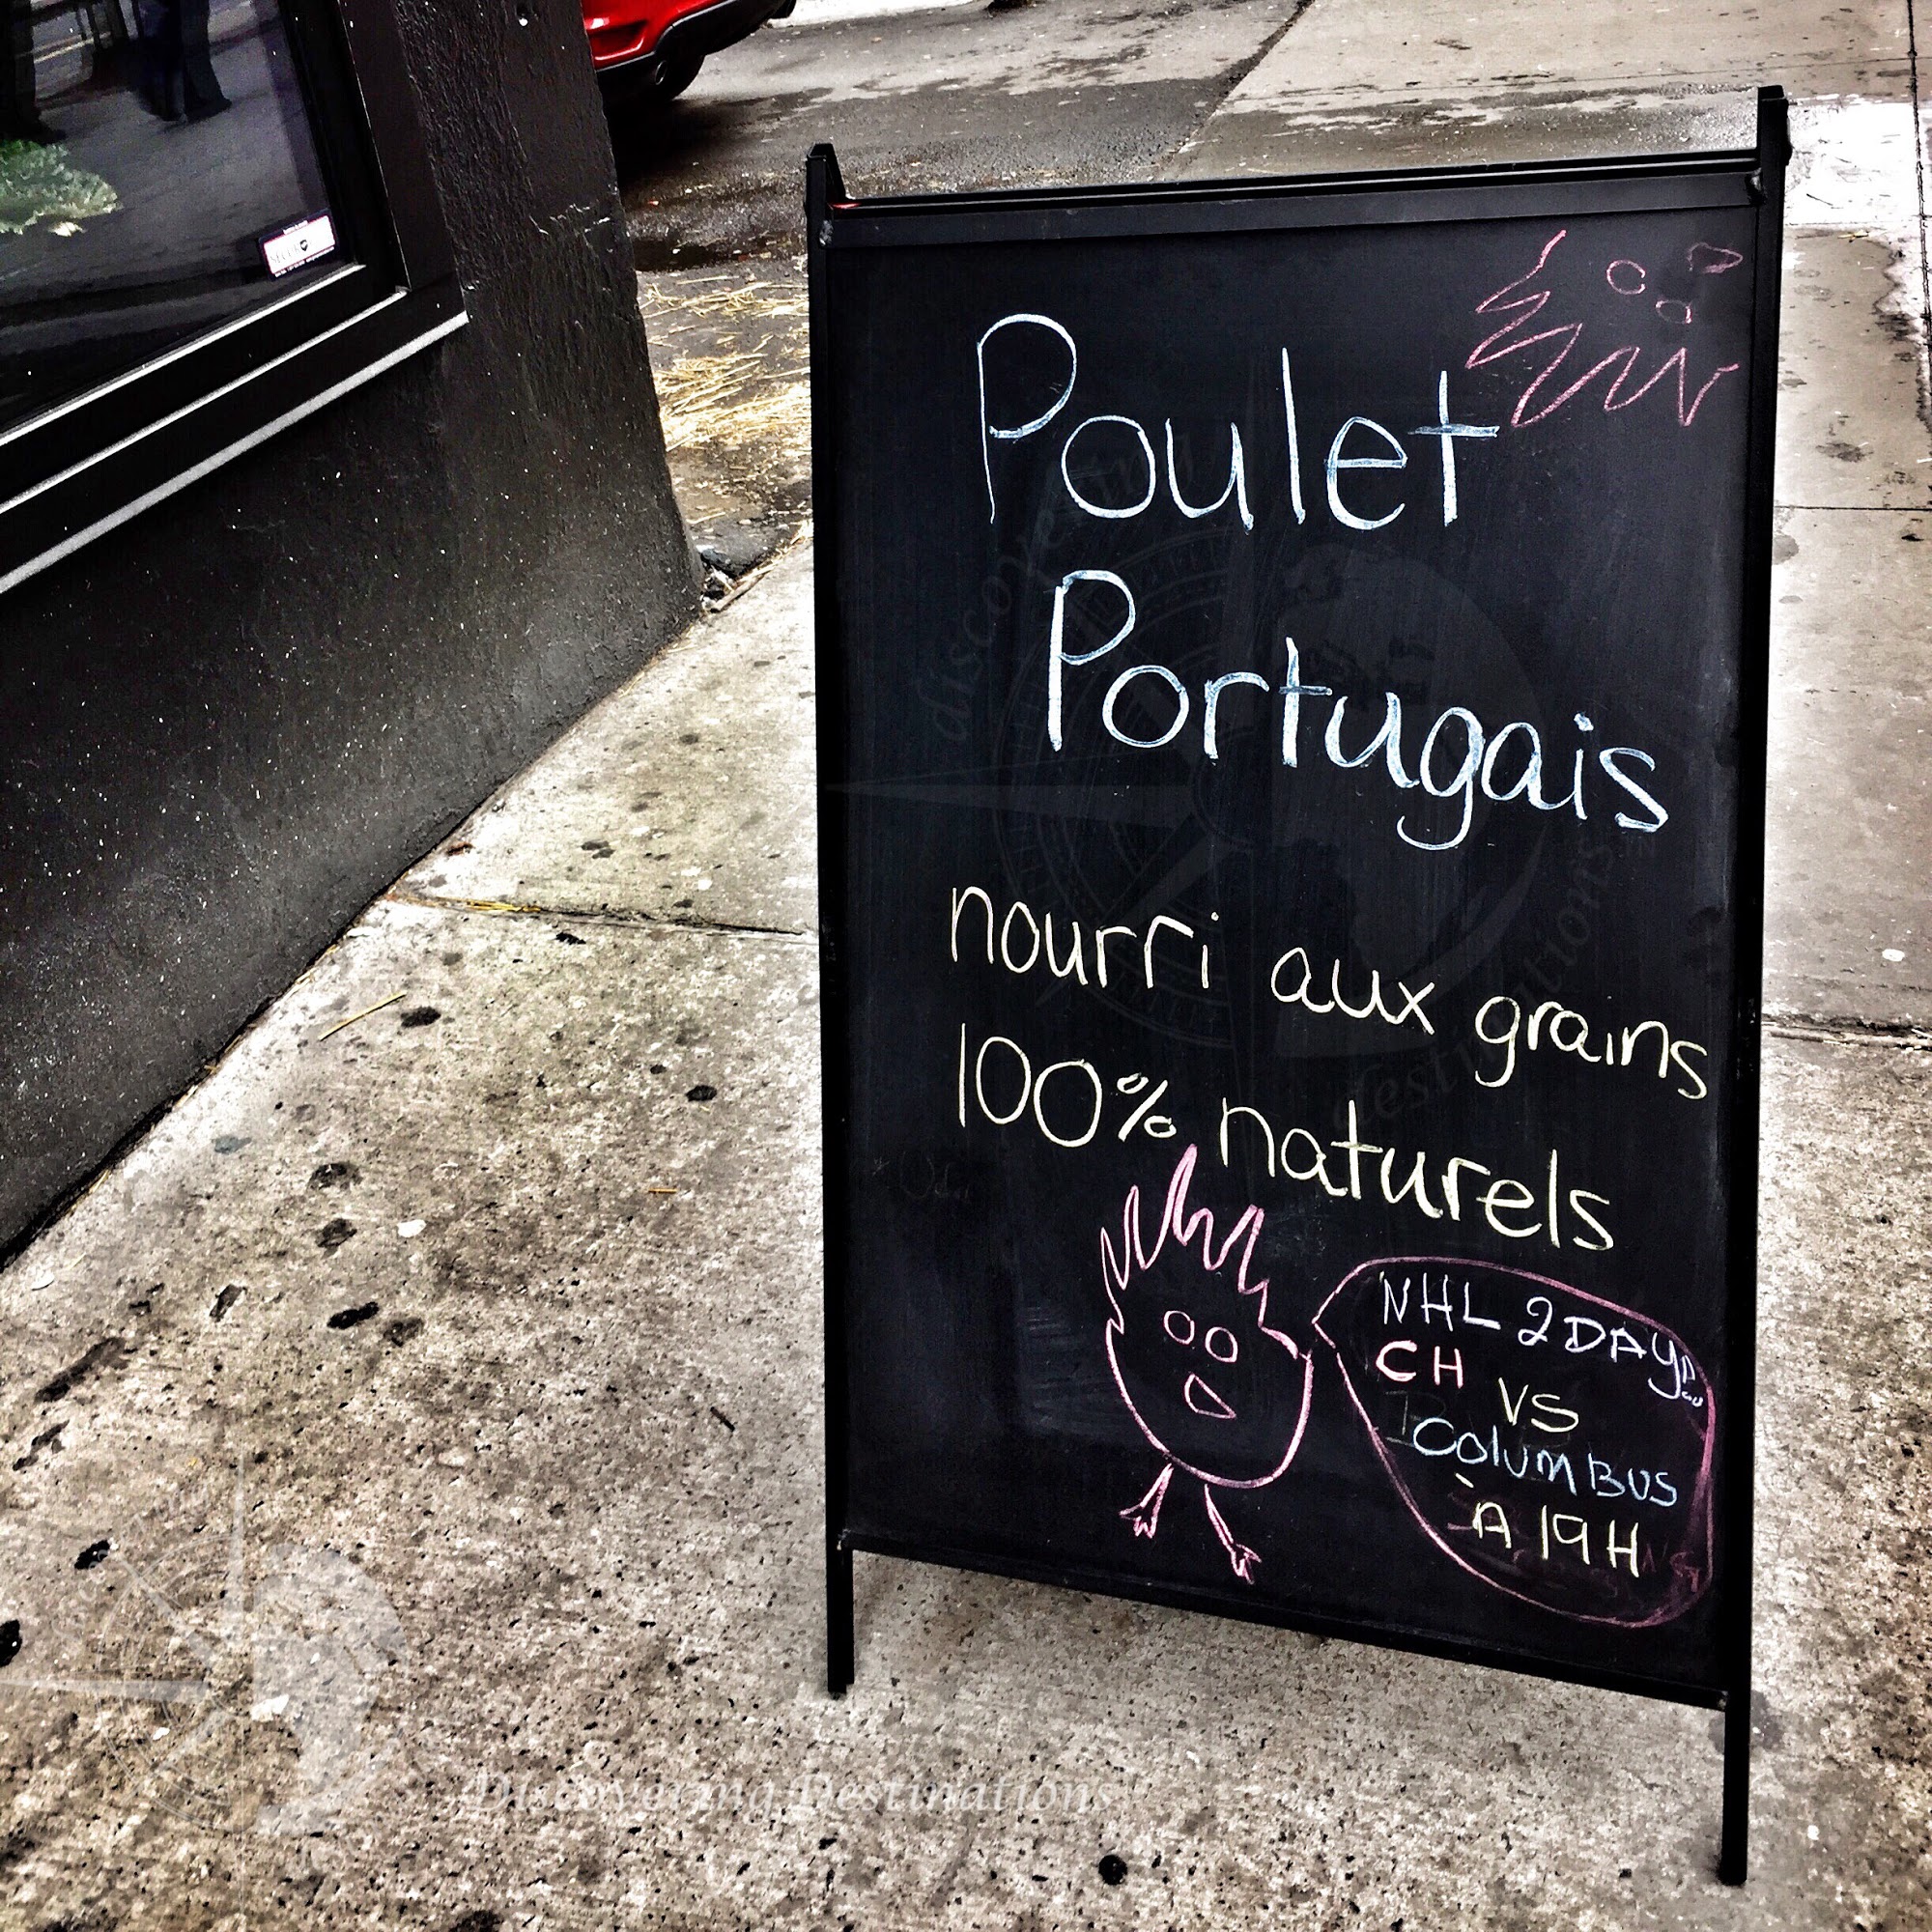 Poulet
Portugais
nourri aux grains
100% naturels
NHL 2DAY
CH
VS
COLUMBUS
À 19H
discovering
destinations
Discovering Destinations